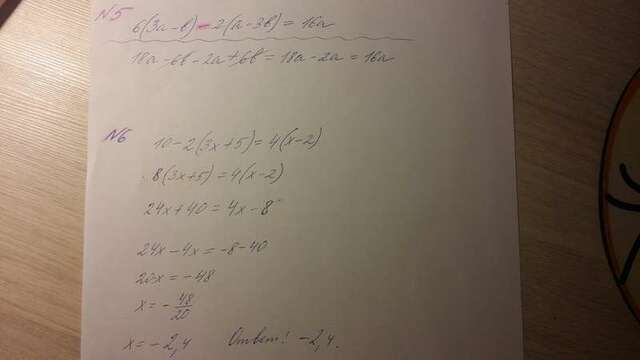 N5
6(3a-b)-2(a-3b)=16a
18a-6b-2a+6b=18a-2a=16a
N6
10-2(3x+5)=4(x-2)
8(3x+5)=4(x-2)
24x+40=4x-8
24x-4x=-8-40
20x=-48
x=-48/20
x=-2,4 Ответ: -2,4.